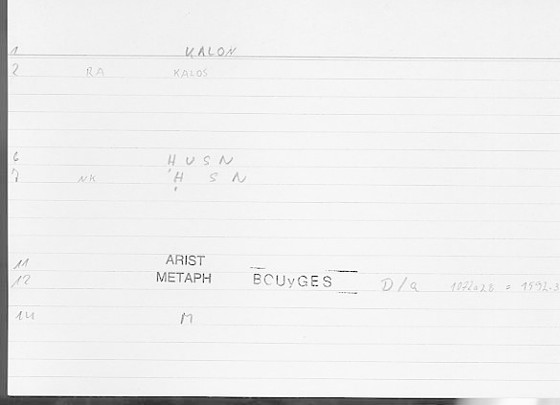 1 KALON
2 RA KALOS
6 HUSN
7 NK H S N
11 ARIST
12 METAPH BOUyGES D/a 1072a28 = 1592.3
14 M